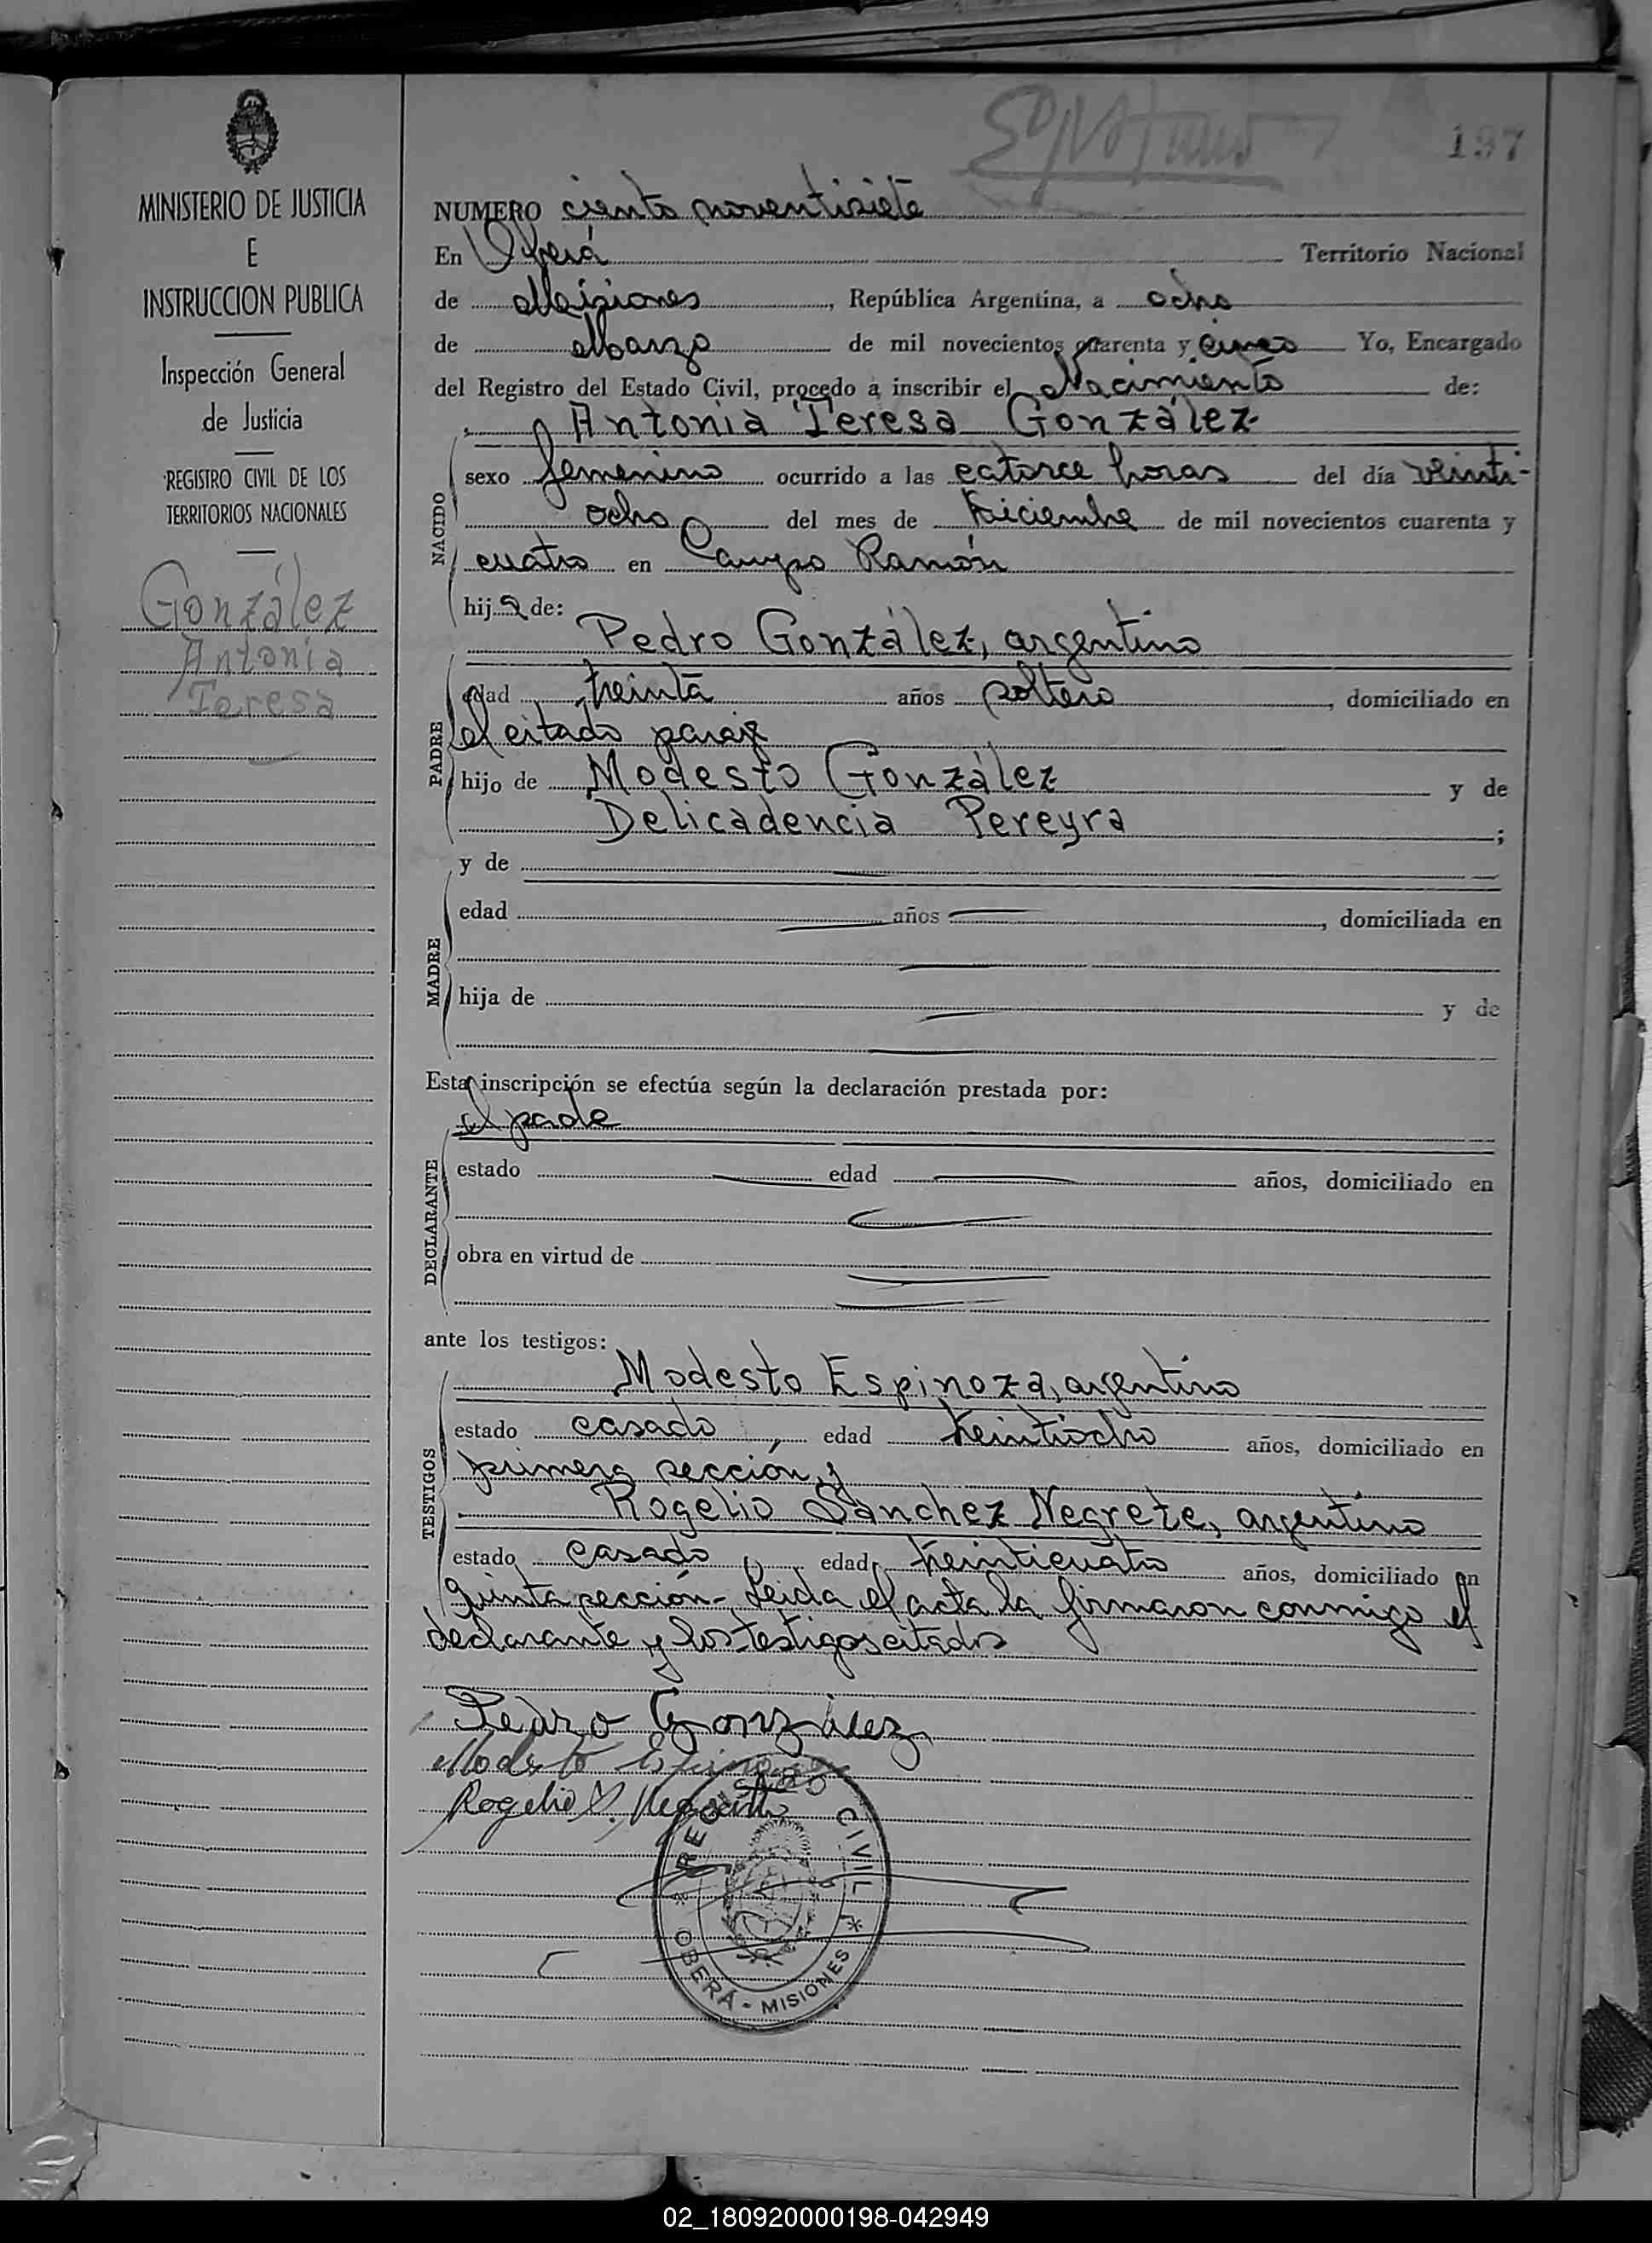 197
MINISTERIO DE JUSTICIA
E
INSTRUCCION PUBLICA
Inspección General
de Justicia
REGISTRO CIVIL DE LOS
TERRITORIOS NACIONALES
González
Antonia
Teresa
NUMERO ciento noventisiete
En Oberá Territorio Nacional
de Misiones, República Argentina, a ocho
de Marzo de mil novecientos cuarenta y cinco Yo, Encargado
del Registro del Estado Civil, procedo a inscribir el Nacimiento de:
Antonia Teresa González
NACIDO
sexo femenino ocurrido a las catorce horas del día veinti-
ocho del mes de Diciembre de mil novecientos cuarenta y
cuatro en Campo Ramón
hija de:
Pedro González, argentino
PADRE
edad treinta años soltero, domiciliado en
el citado paraje
hijo de Modesto González y de
Delicadencia Pereyra;
y de
MADRE
edad años, domiciliada en
hija de y de
Esta inscripción se efectúa según la declaración prestada por:
el padre
DECLARANTE
estado edad años, domiciliado en
obra en virtud de
ante los testigos:
Modesto Espinoza, argentino
TESTIGOS
estado casado, edad treintiocho años, domiciliado en
primera sección, y
Rogelio Sánchez Negrete, argentino
estado casado, edad treinticuatro años, domiciliado en
quinta sección- Leida el acta la firmaron conmigo el
declarante y los testigos citados
Pedro Gonzalez
Modesto Espinoza
Rogelio S. Negrette
REGISTRO CIVIL
* OBERÁ - MISIONES *
02_180920000198-042949